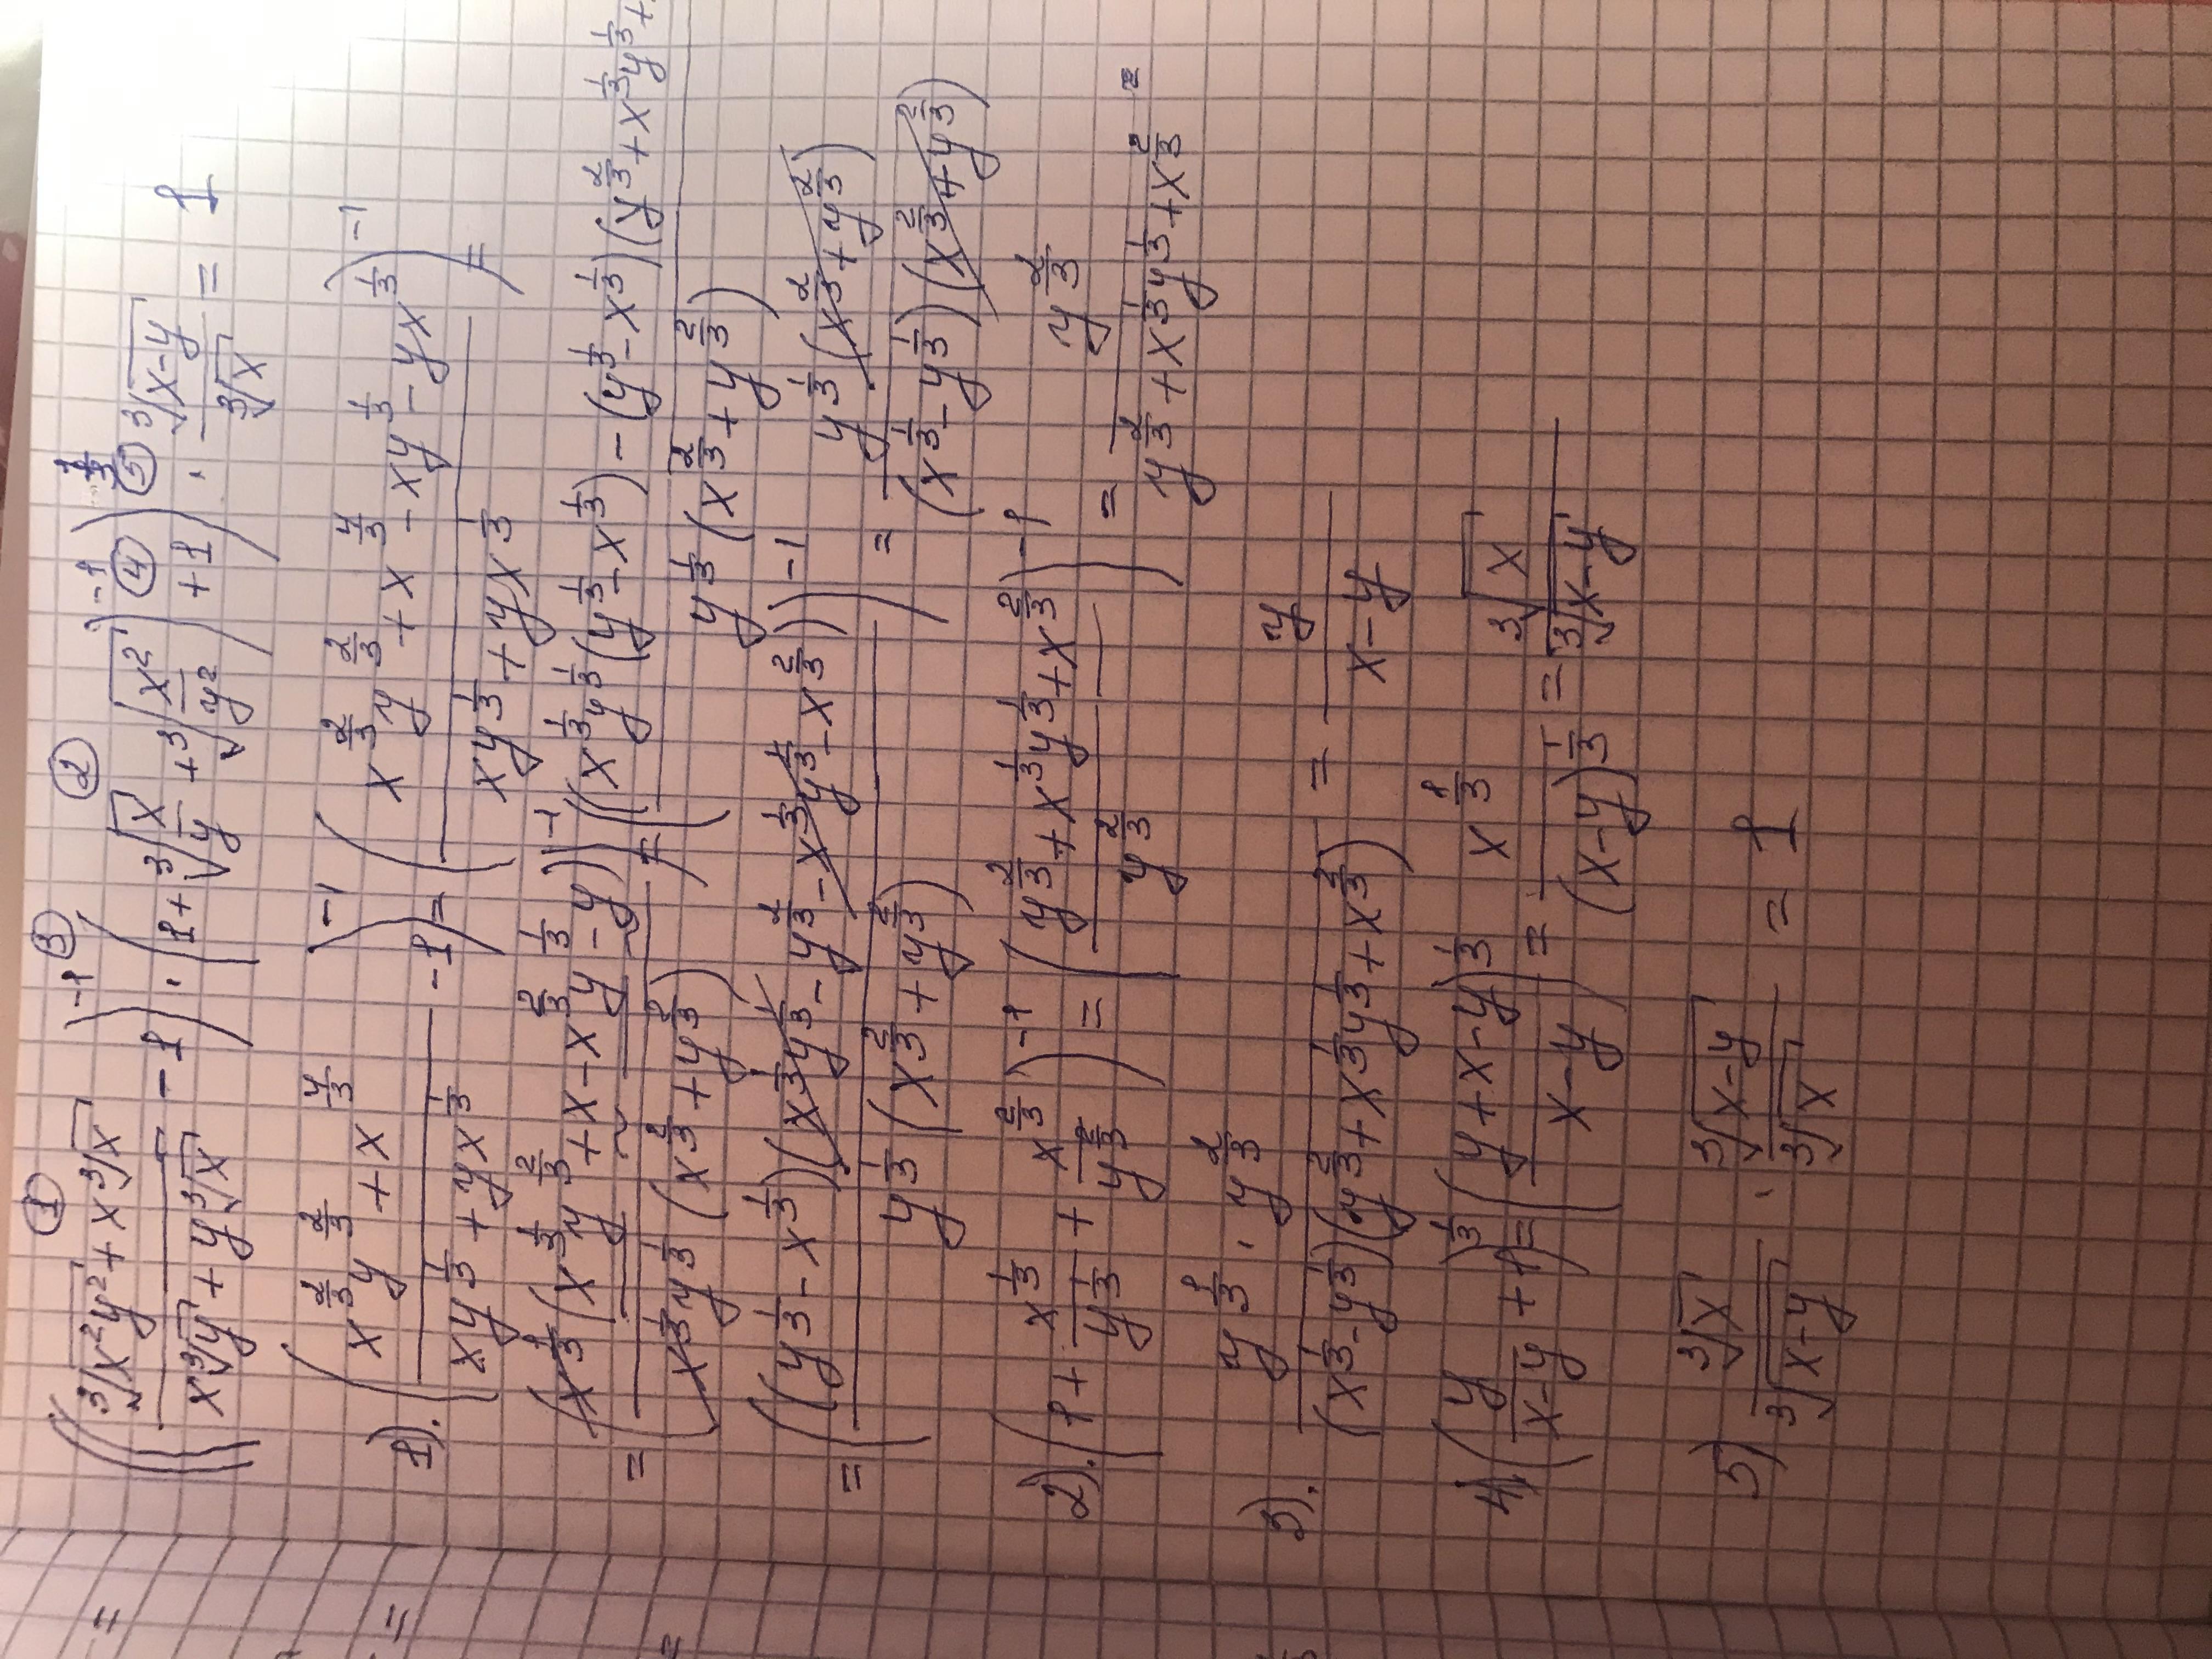 ① ② ③ ④ ⑤
(((∛(x²y²) + x∛x)/(x∛y + y∛x) - 1)⁻¹ · (1 + ∛(x/y) + ∛(x²/y²))⁻¹ + 1)^(1/3) · ∛(x-y)/∛x = 1
1). ((x^(2/3)y^(2/3) + x^(4/3))/(xy^(1/3) + yx^(1/3)) - 1)⁻¹ = ((x^(2/3)y^(2/3) + x^(4/3) - xy^(1/3) - yx^(1/3))/(xy^(1/3) + yx^(1/3)))⁻¹ =
= ((x^(1/3)(x^(1/3)y^(2/3) + x - x^(2/3)y^(1/3) - y))/(x^(1/3)y^(1/3)(x^(2/3) + y^(2/3))))⁻¹ = ((x^(1/3)y^(1/3)(y^(1/3) - x^(1/3)) - (y^(1/3) - x^(1/3))(y^(2/3) + x^(1/3)y^(1/3) +
y^(1/3)(x^(2/3) + y^(2/3))
= (((y^(1/3) - x^(1/3))(x^(1/3)y^(1/3) - y^(2/3) - x^(1/3)y^(1/3) - x^(2/3)))/(y^(1/3)(x^(2/3) + y^(2/3))))⁻¹ = (y^(1/3)·(x^(2/3) + y^(2/3)))/((x^(1/3) - y^(1/3))(x^(2/3) + y^(2/3)))
2). (1 + x^(1/3)/y^(1/3) + x^(2/3)/y^(2/3))⁻¹ = ((y^(2/3) + x^(1/3)y^(1/3) + x^(2/3))/y^(2/3))⁻¹ = y^(2/3)/(y^(2/3) + x^(1/3)y^(1/3) + x^(2/3)) =
3). (y^(1/3) · y^(2/3))/((x^(1/3) - y^(1/3))(y^(2/3) + x^(1/3)y^(1/3) + x^(2/3))) = y/(x-y)
4). (y/(x-y) + 1)^(1/3) = ((y+x-y)/(x-y))^(1/3) = x^(1/3)/(x-y)^(1/3) = ∛x/∛(x-y)
5) ∛x/∛(x-y) · ∛(x-y)/∛x = 1